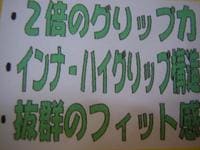 2倍のグリップ力
インナ・ハイグリップ構造
抜群のフィット感